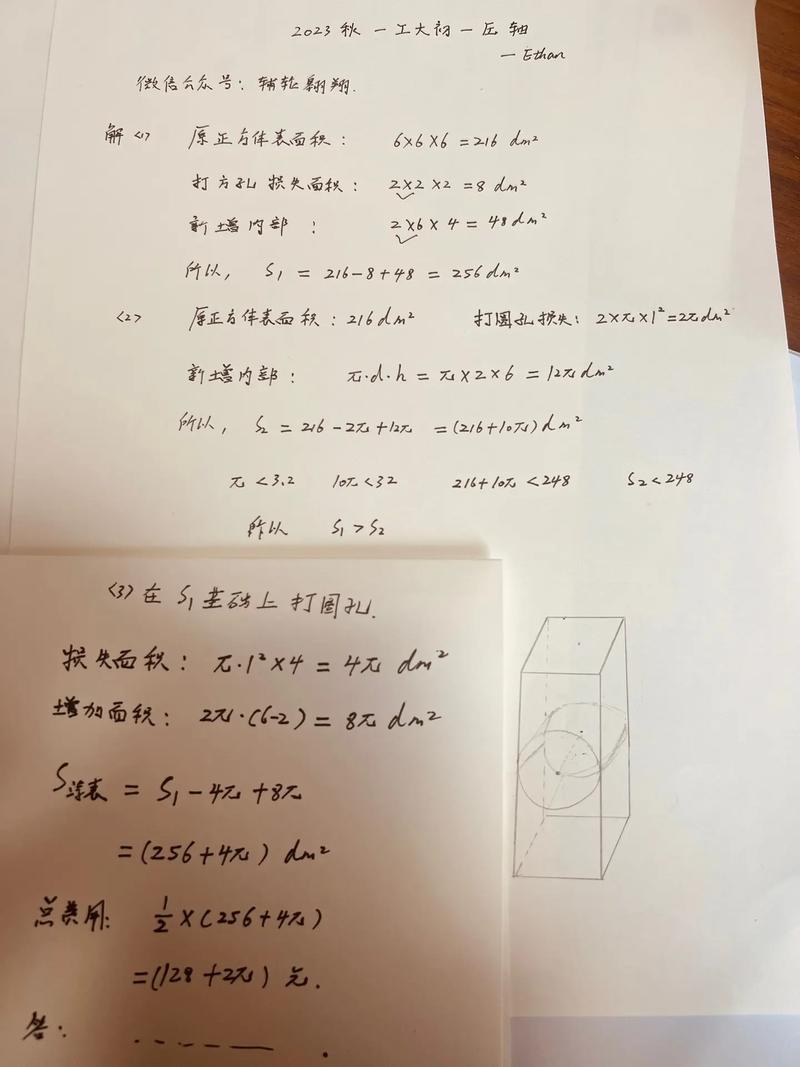 2023秋一工大初一压轴
— Ethan
微信公众号：辅轮翱翔.
解 <1> 原正方体表面积： 6×6×6 =216 dm²
打方孔损失面积： 2×2×2 =8 dm²
新增内部： 2×6×4 = 48 dm²
所以， S₁ = 216-8+48 = 256 dm²
<2> 原正方体表面积：216 dm² 打圆孔损失：2×π×1²=2π dm²
新增内部： π·d·h = π×2×6 = 12π dm²
所以， S₂ = 216-2π+12π =(216+10π) dm²
π<3.2 10π<32 216+10π<248 S₂<248
所以 S₁>S₂
<3> 在S₁基础上打圆孔.
损失面积： π·1²×4 = 4π dm²
增加面积： 2π·(6-2) = 8π dm²
S涂表 = S₁-4π+8π
=(256+4π) dm²
总费用： 1/2 ×(256+4π)
=(128+2π) 元.
答：